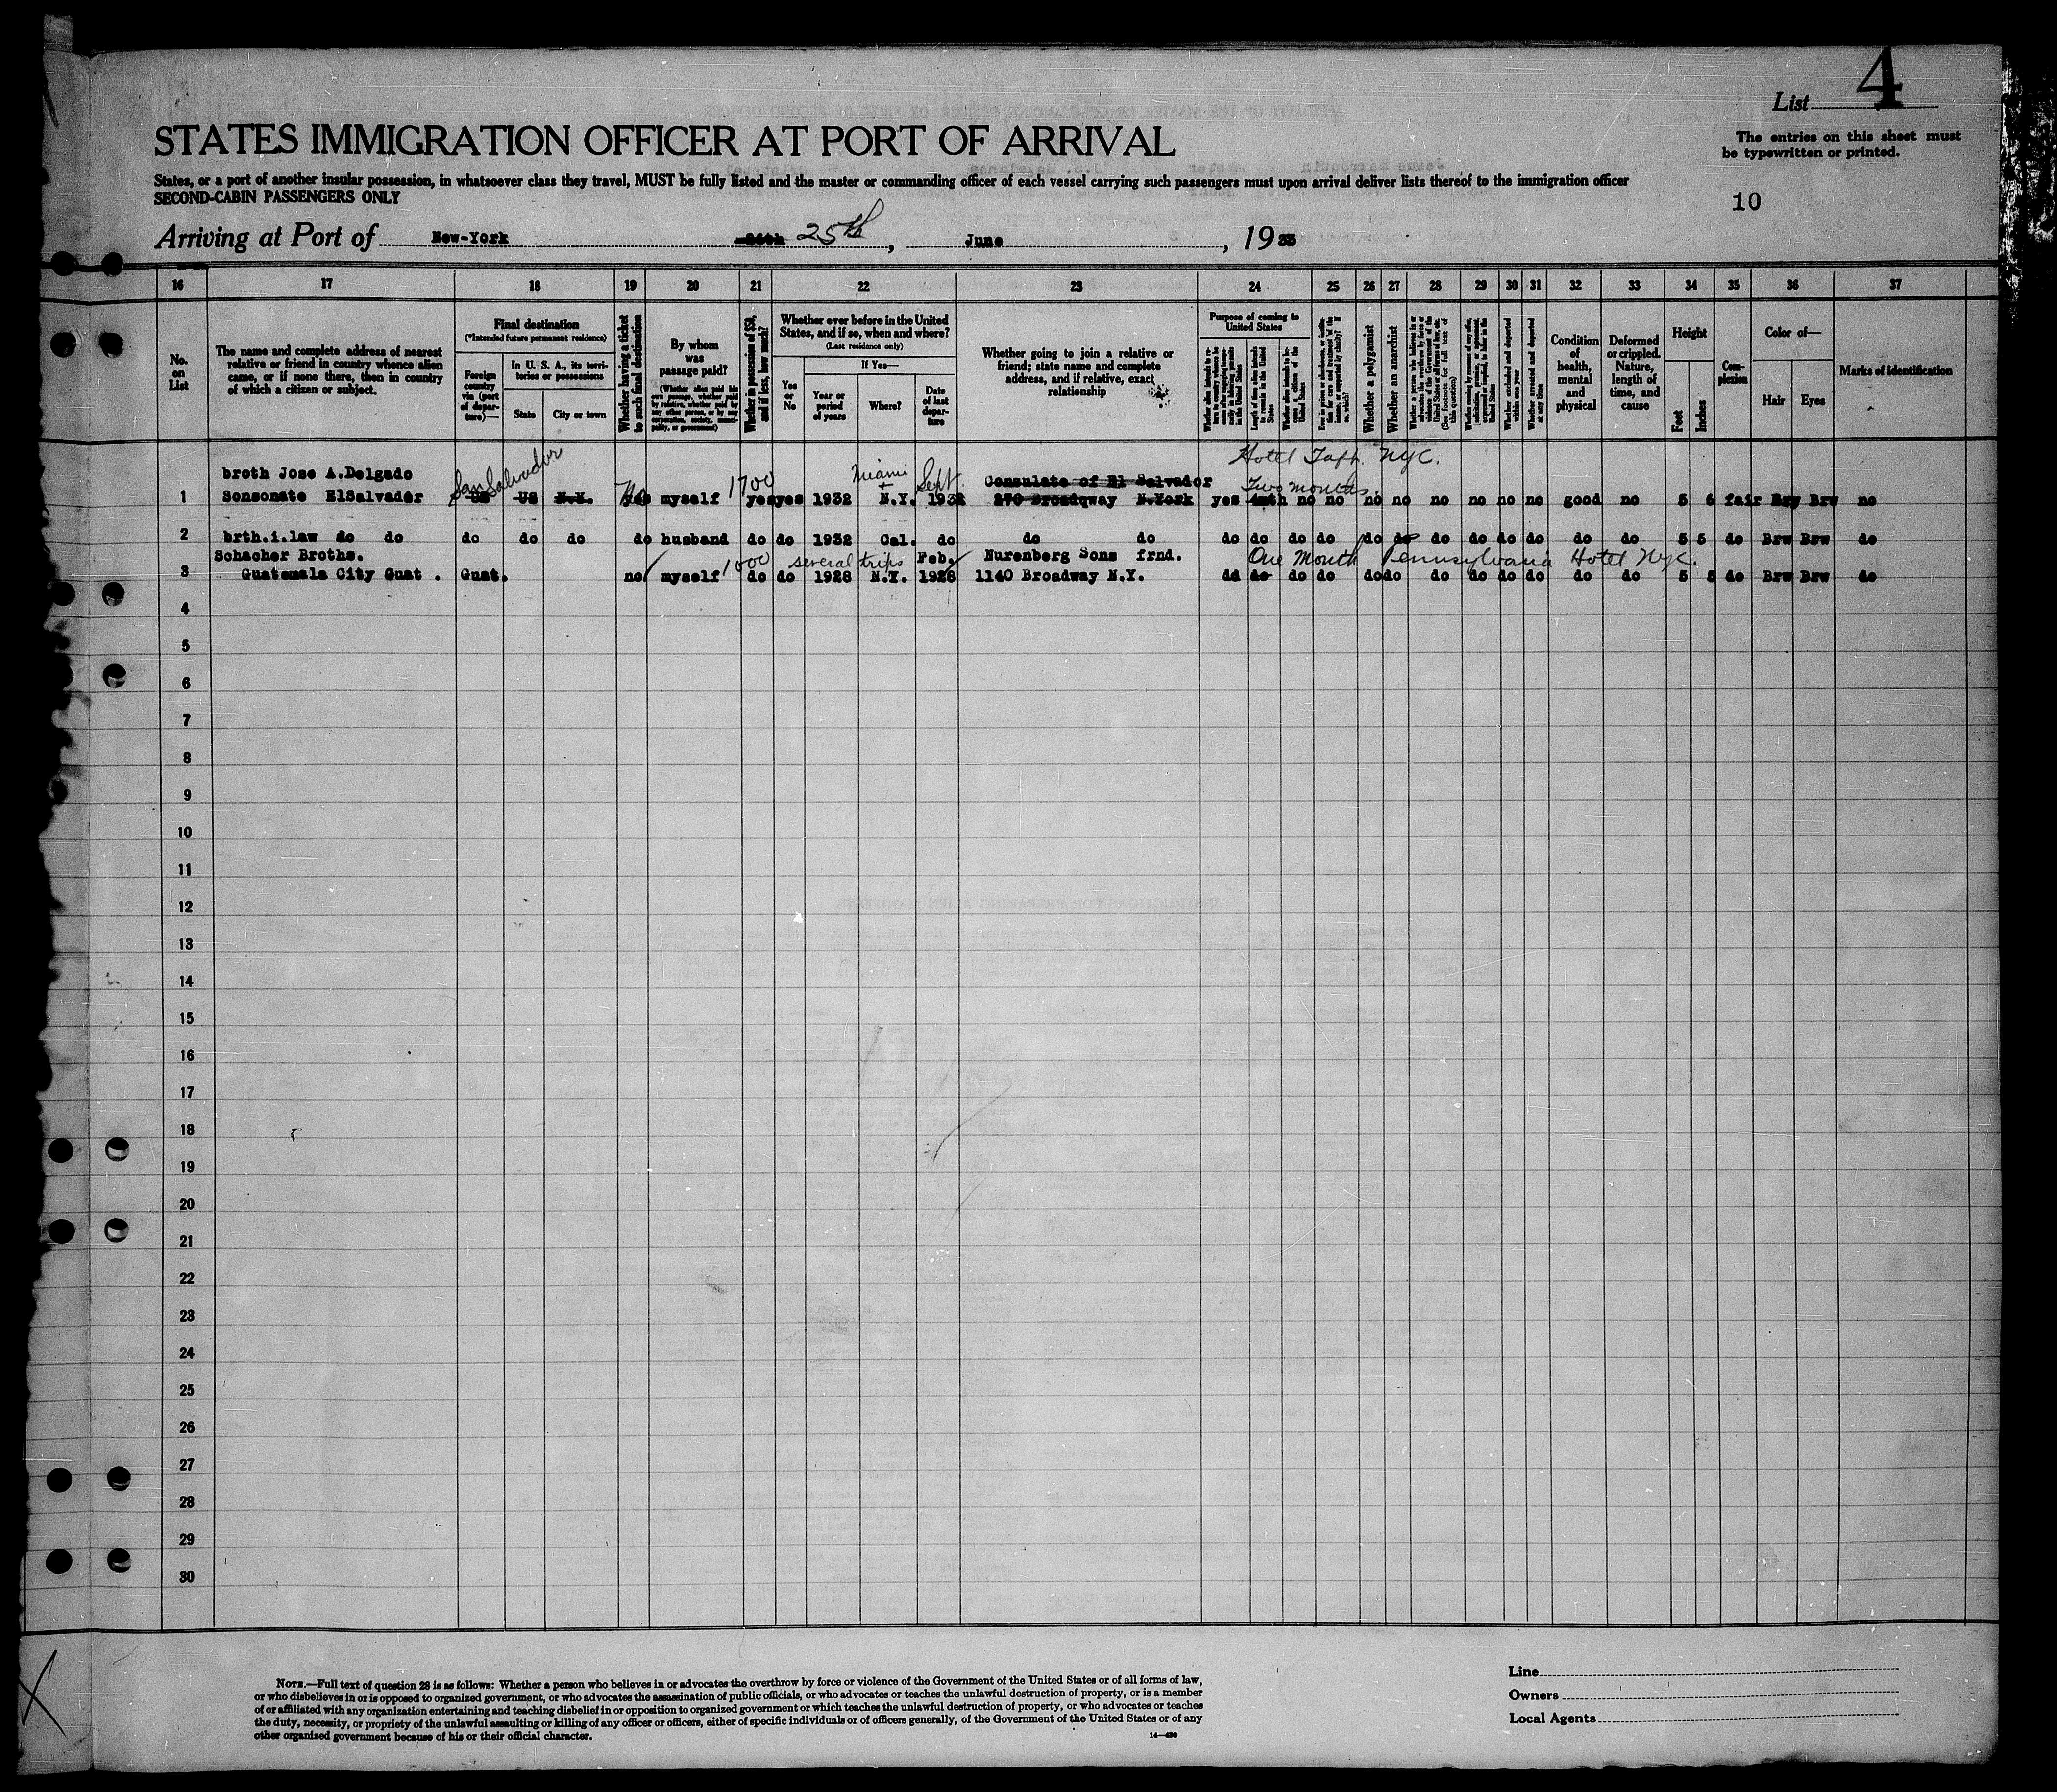 List 4
STATES IMMIGRATION OFFICER AT PORT OF ARRIVAL
The entries on this sheet must
be typewritten or printed.
States, or a port of another insular possession, in whatsoever class they travel, MUST be fully listed and the master or commanding officer of each vessel carrying such passengers must upon arrival deliver lists thereof to the immigration officer
SECOND-CABIN PASSENGERS ONLY
10
Arriving at Port of New-York 25th, June, 1933
16 17 18 19 20 21 22 23 24 25 26 27 28 29 30 31 32 33 34 35 36 37
No. on List
The name and complete address of nearest
relative or friend in country whence alien
came, or if none there, then in country
of which a citizen or subject.
Final destination
(*Intended future permanent residence)
Foreign country via (port of departure)—
In U. S. A., its territories or possessions
State
City or town
Whether having a ticket to such final destination
By whom was passage paid?
(Whether alien paid his own passage, whether paid by relative, whether paid by any other person, or by any corporation, society, municipality, or government)
Whether in possession of $50, and if less, how much?
Whether ever before in the United
States, and if so, when and where?
(Last residence only)
Yes or No
If Yes—
Year or period of years
Where?
Date of last departure
Whether going to join a relative or
friend; state name and complete
address, and if relative, exact
relationship
Purpose of coming to United States
Length of time alien intends to remain in the United States
Whether alien intends to become a citizen of the United States
Whether a polygamist
Whether an anarchist
(See footnote for full text of this question)
Whether excluded and deported within one year
Whether arrested and deported at any time
Condition of health, mental and physical
Deformed or crippled. Nature, length of time, and cause
Height
Feet
Inches
Complexion
Color of—
Hair
Eyes
Marks of identification
Hotel Taft. NYC.
broth Jose A.Delgado San Salvador 1700 Miami + Sept. Consulate of El Salvador Two months
1 Sonsonate ElSalvador US US N.Y. myself yes yes 1932 N.Y. 1932 270 Broadway N.York yes no no no no no no no no good no 5 6 fair Brw Brw no
2 brth.i.law do do do do do do husband do do 1932 Cal. do do do do do do do do do do do do do do do 5 5 do Brw Brw do
Schacher Broths. 1000 several trips Feb. Nurenberg Sons frnd. One Month Pennsylvania Hotel Nyc.
3 Guatemala City Guat . Guat. no myself do do 1928 N.Y. 1928 1140 Broadway N.Y. do do do do do do do do do do do do 5 5 do Brw Brw do
4
5
6
7
8
9
10
11
12
13
14
15
16
17
18
19
20
21
22
23
24
25
26
27
28
29
30
NOTE.—Full text of question 28 is as follows: Whether a person who believes in or advocates the overthrow by force or violence of the Government of the United States or of all forms of law,
or who disbelieves in or is opposed to organized government, or who advocates the assassination of public officials, or who advocates or teaches the unlawful destruction of property, or is a member
of or affiliated with any organization entertaining and teaching disbelief in or opposition to organized government or which teaches the unlawful destruction of property, or who advocates or teaches
the duty, necessity, or propriety of the unlawful assaulting or killing of any officer or officers, either of specific individuals or of officers generally, of the Government of the United States or of any
other organized government because of his or their official character.
14—430
Line
Owners
Local Agents